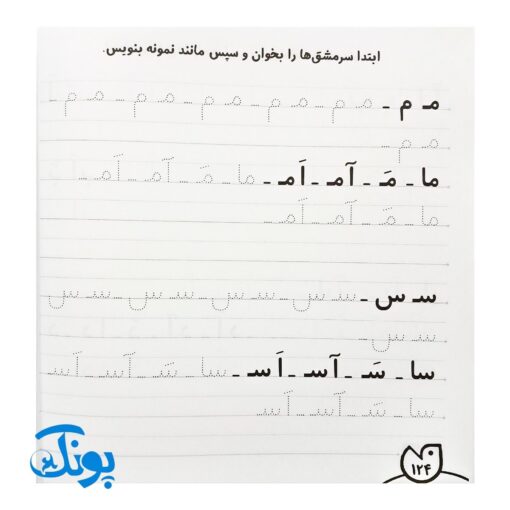 ابتدا سرمشق‌ها را بخوان و سپس مانند نمونه بنویس.
مـ م ـ مـ م ـ مـ م ـ مـ م ـ مـ م ـ مـ م
مـ م ـ
ما ـ مَـ ـ آمـ ـ اَمـ ـ ما ـ مَـ ـ آمـ ـ اَمـ ـ
ما ـ مَـ ـ آمـ ـ اَمـ ـ
سـ س ـ سـ س ـ سـ س ـ سـ س ـ سـ س
سـ س ـ
سا ـ سَـ ـ آسـ ـ اَسـ ـ سا ـ سَـ ـ آسـ ـ اَسـ
سا ـ سَـ ـ آسـ ـ اَسـ
۱۲۴
پونک